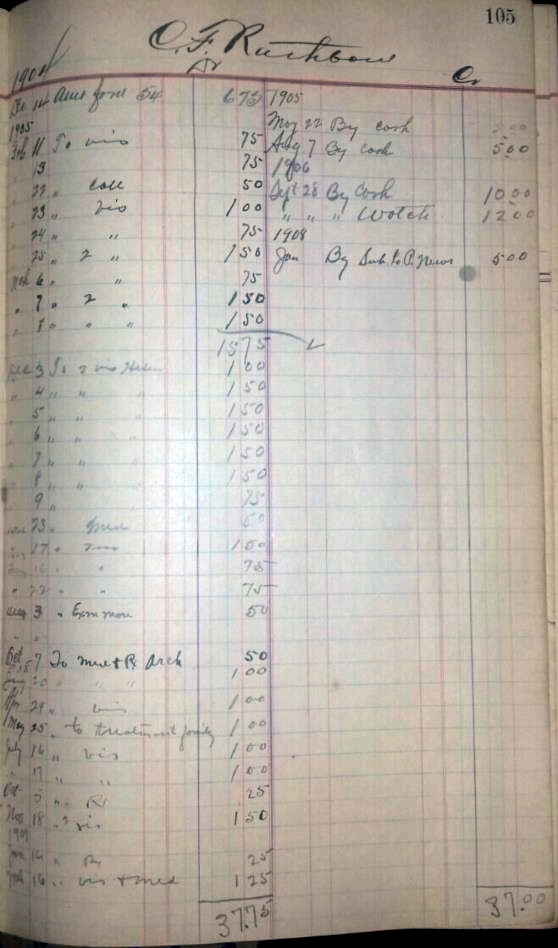 105
O. F. Rathbone
1904 Dr Cr
Dec 14 Acct from 54 6 75 1905
1905 May 22 By cash
Feb 11 To vis 75 Aug 7 By cash 5 00
" 13 75 1906
" 22 " call 50 Sept 28 By Cash 10 00
" 23 " vis 1 00 " " " Watch 12 00
" 24 " " 75 1908
" 25 " 2 " 1 50 Jan By Sub. to P. News 5 00
Mch 6 " " 75
" 7 " 2 " 1 50
" 8 " " " 1 50
15 75
3 To 2 vis 1 00
" 4 " " " 1 50
" 5 " " " 1 50
" 6 " " " 1 50
" 7 " " " 1 50
" 8 " " " 1 50
" 9 " " 75
23 " med 50
17 " 1 00
" " 75
" 22 " " 75
Aug 3 " 50
Oct 7 To med & Rx Arch 50
" " " 1 00
Apr 29 " vis 1 00
May 25 " to treatment family 1 00
July 16 " vis 1 00
" 17 " " 1 00
Oct " Rx 25
Nov 18 " 2 vis 1 50
Jan 14 " Rx 25
16 " vis & med 1 25
37.75 37.00